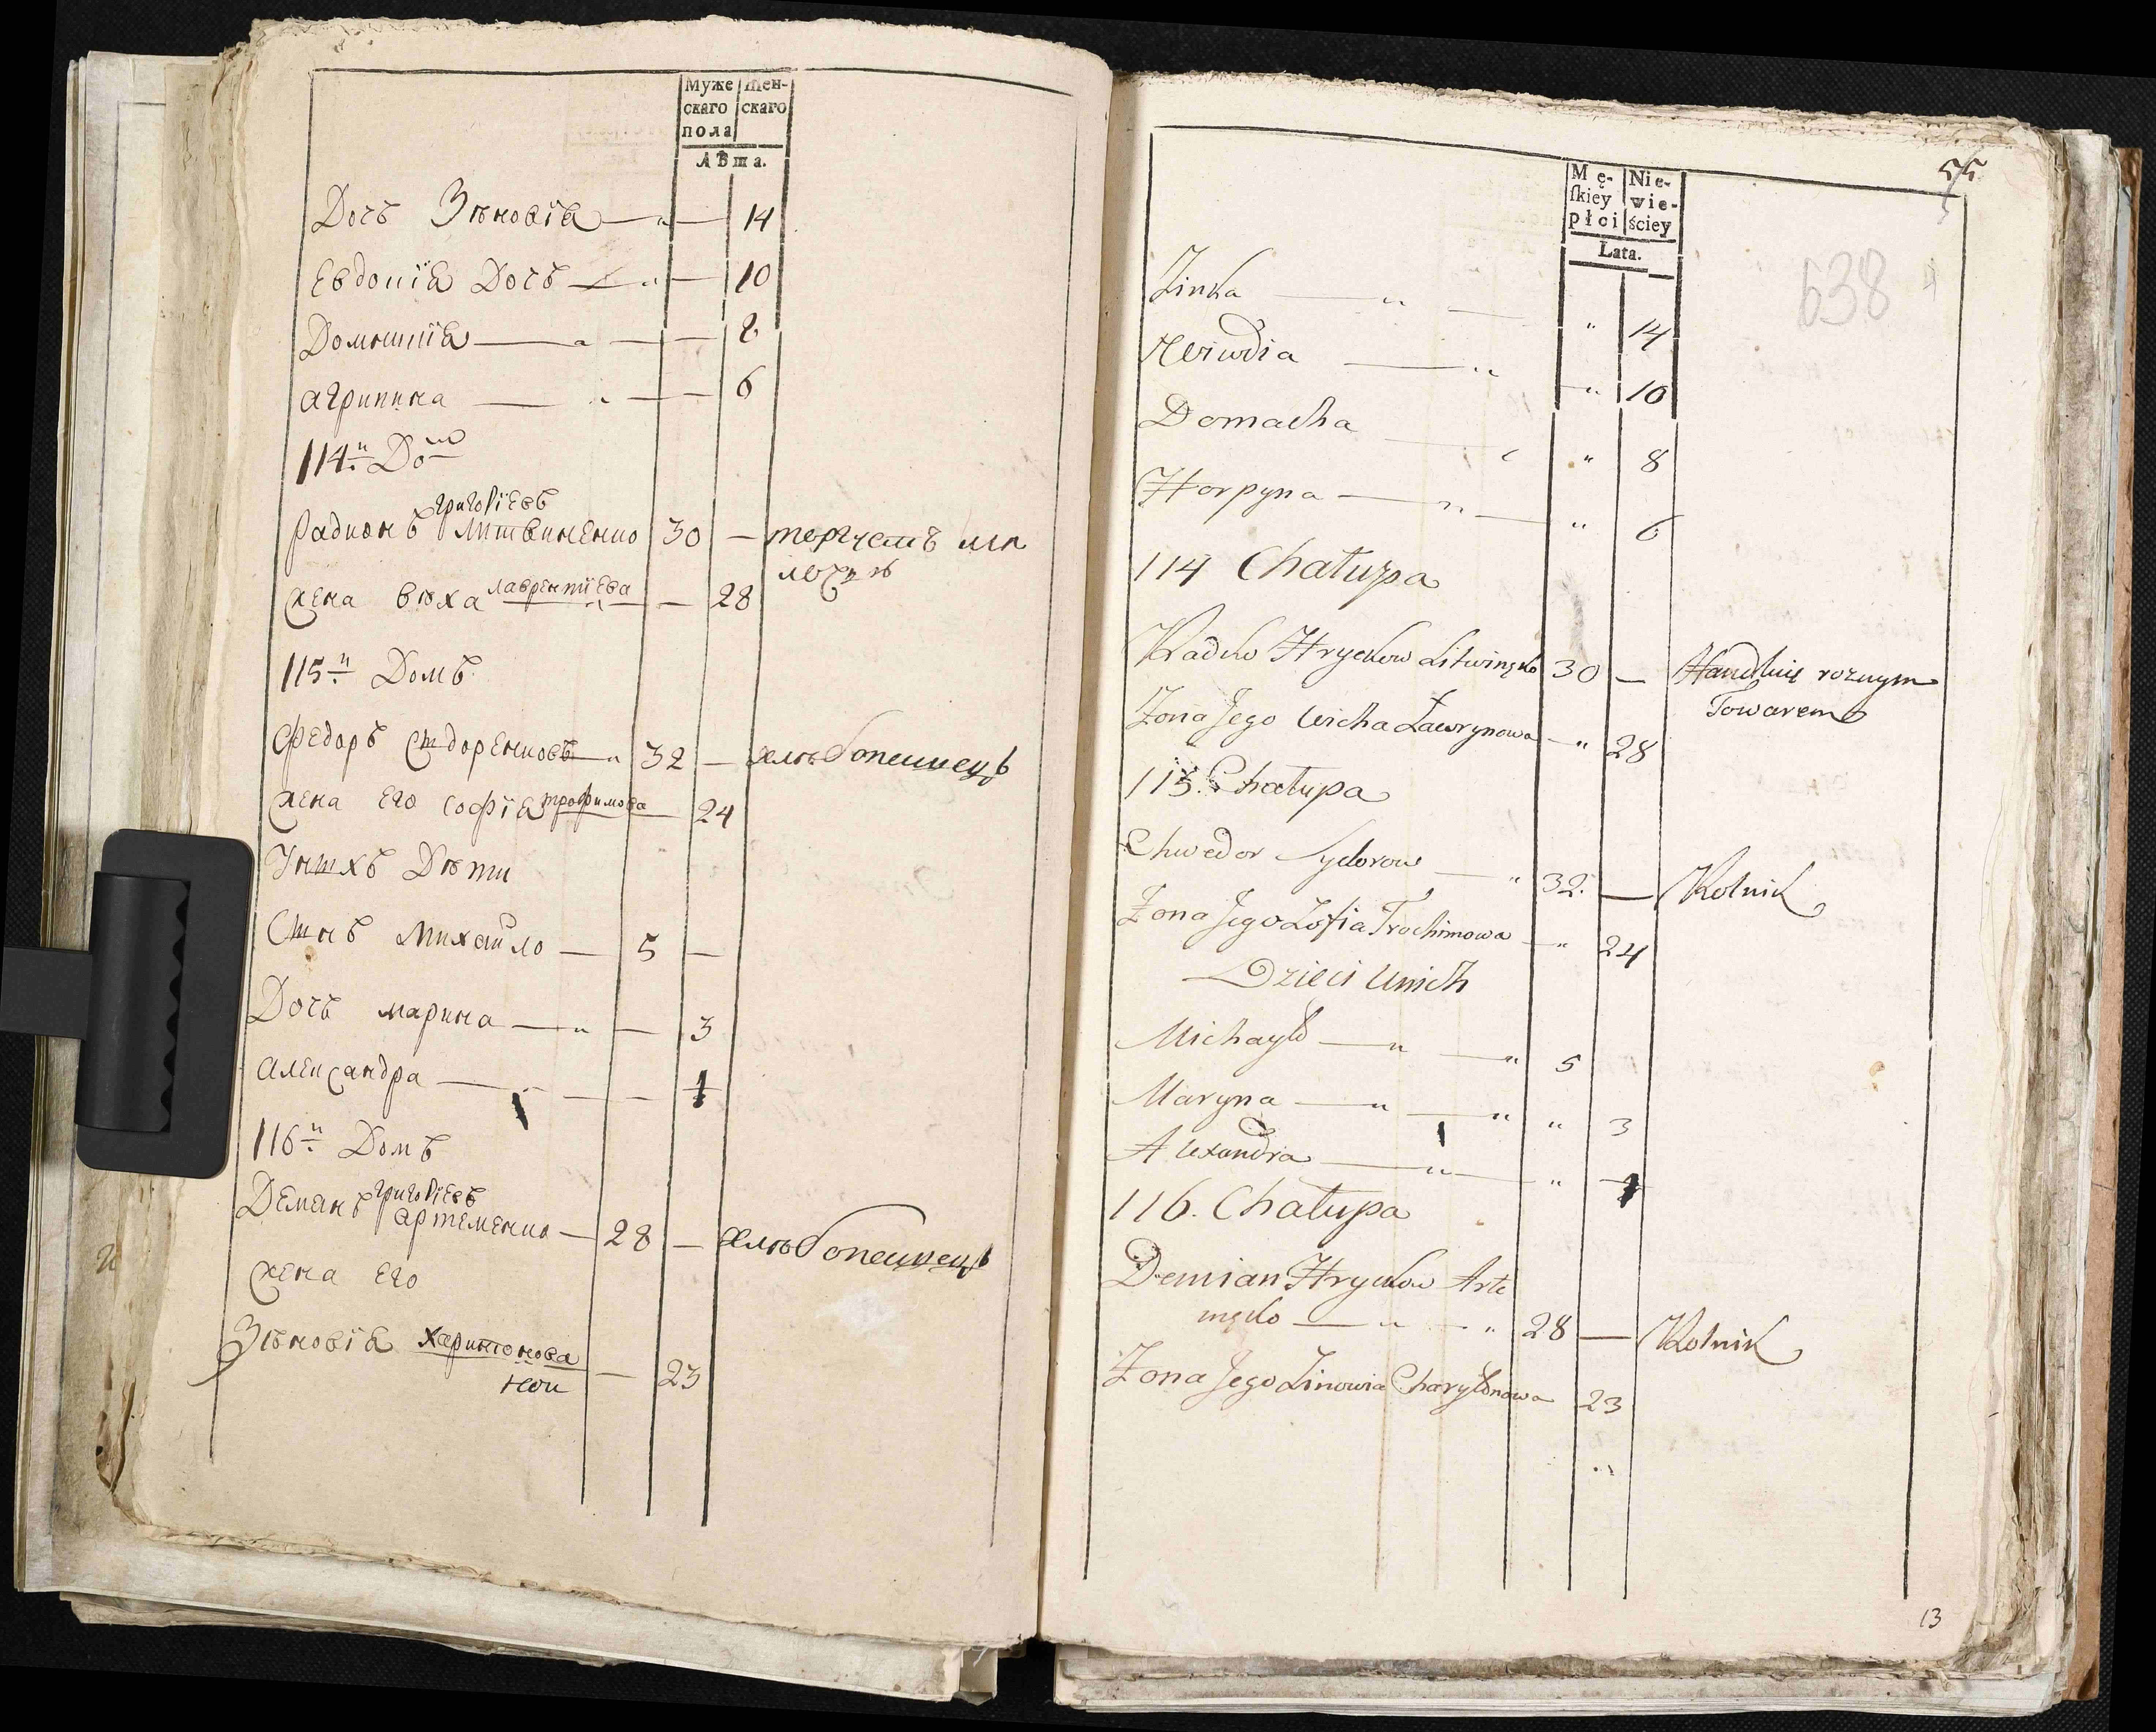 Муже
скаго
пола
Жен-
скаго
Лѣта.
Дочъ Зѣновія — „ — 14
Евдокія Дочъ — „ — 10
Домникія — „ — 8
агрипина — „ — 6
114й До
григоріевъ
Радионъ Литвиненко 30 — торгуетъ
жена вѣха лаврентіева — 28
115й Домъ
Федоръ Сидоренковъ — „ 32 — хлѣбопешецъ
жена его софія трофимова — 24
Унихъ Дѣти
Синъ михайло — 5 —
Дочъ марина — „ — 3
александра — „ — 1
116й Домъ
григоріевъ
Демянъ артеменко — 28 — хлѣбопешецъ
жена его
Зѣновія харитонова — 23
Mę-
ſkiey
płci
Nie-
wie-
ściey
Lata.
638
Zinka — „ — „ 14
Domacha — „ 8
Horpyna — „ — „ 6
114 Chałupa
Radko Hryckow Litwinęko 30 — Handluie roznym
Towarem
Zona Jego Wicha Ławrynowa — „ 28
115. Chałupa
Chwedor Sydorow — „ 32. — Rolnik
Zona Jego Zofia Trochimowa — „ 24
Dzieci Unich
Michayło — „ — „ 5
Maryna — „ — „ „ 3
Alexandra — „ — „ 1
116. Chałupa
Demian Hryckow Arte
męko — „ — „ 28 — Rolnik
Zona Jego Zinowia Charytonowa 23
13